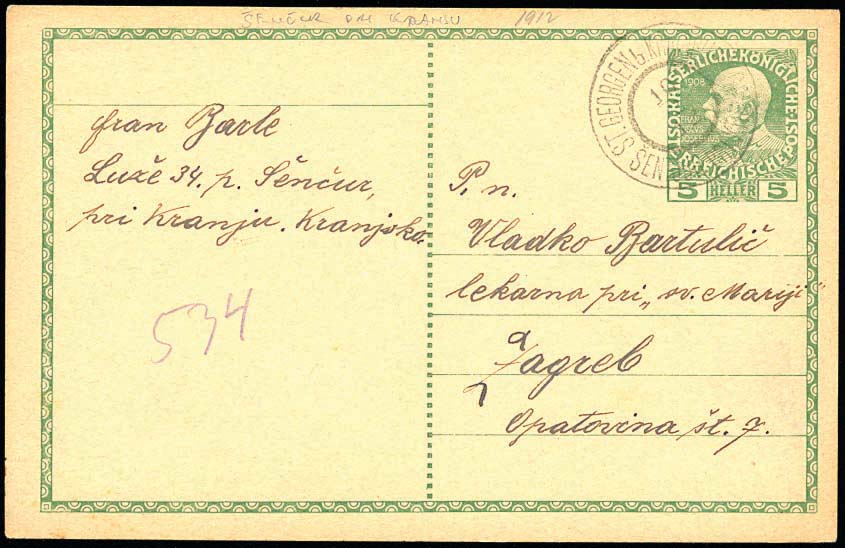 ŠENČUR PRI KRANJU 1912
fran Barle
Luže 34. p. Šenčur,
pri Kranju. Kranjsko.
534
ST. GEORGEN b. KR
ŠEN
1908
KAISERLICHEKÖNIGLICHE
5 HELLER 5
P. n.
Vladko Bartulić
lekarna pri „sv. Mariji"
Zagreb
Opatovina št. 7.